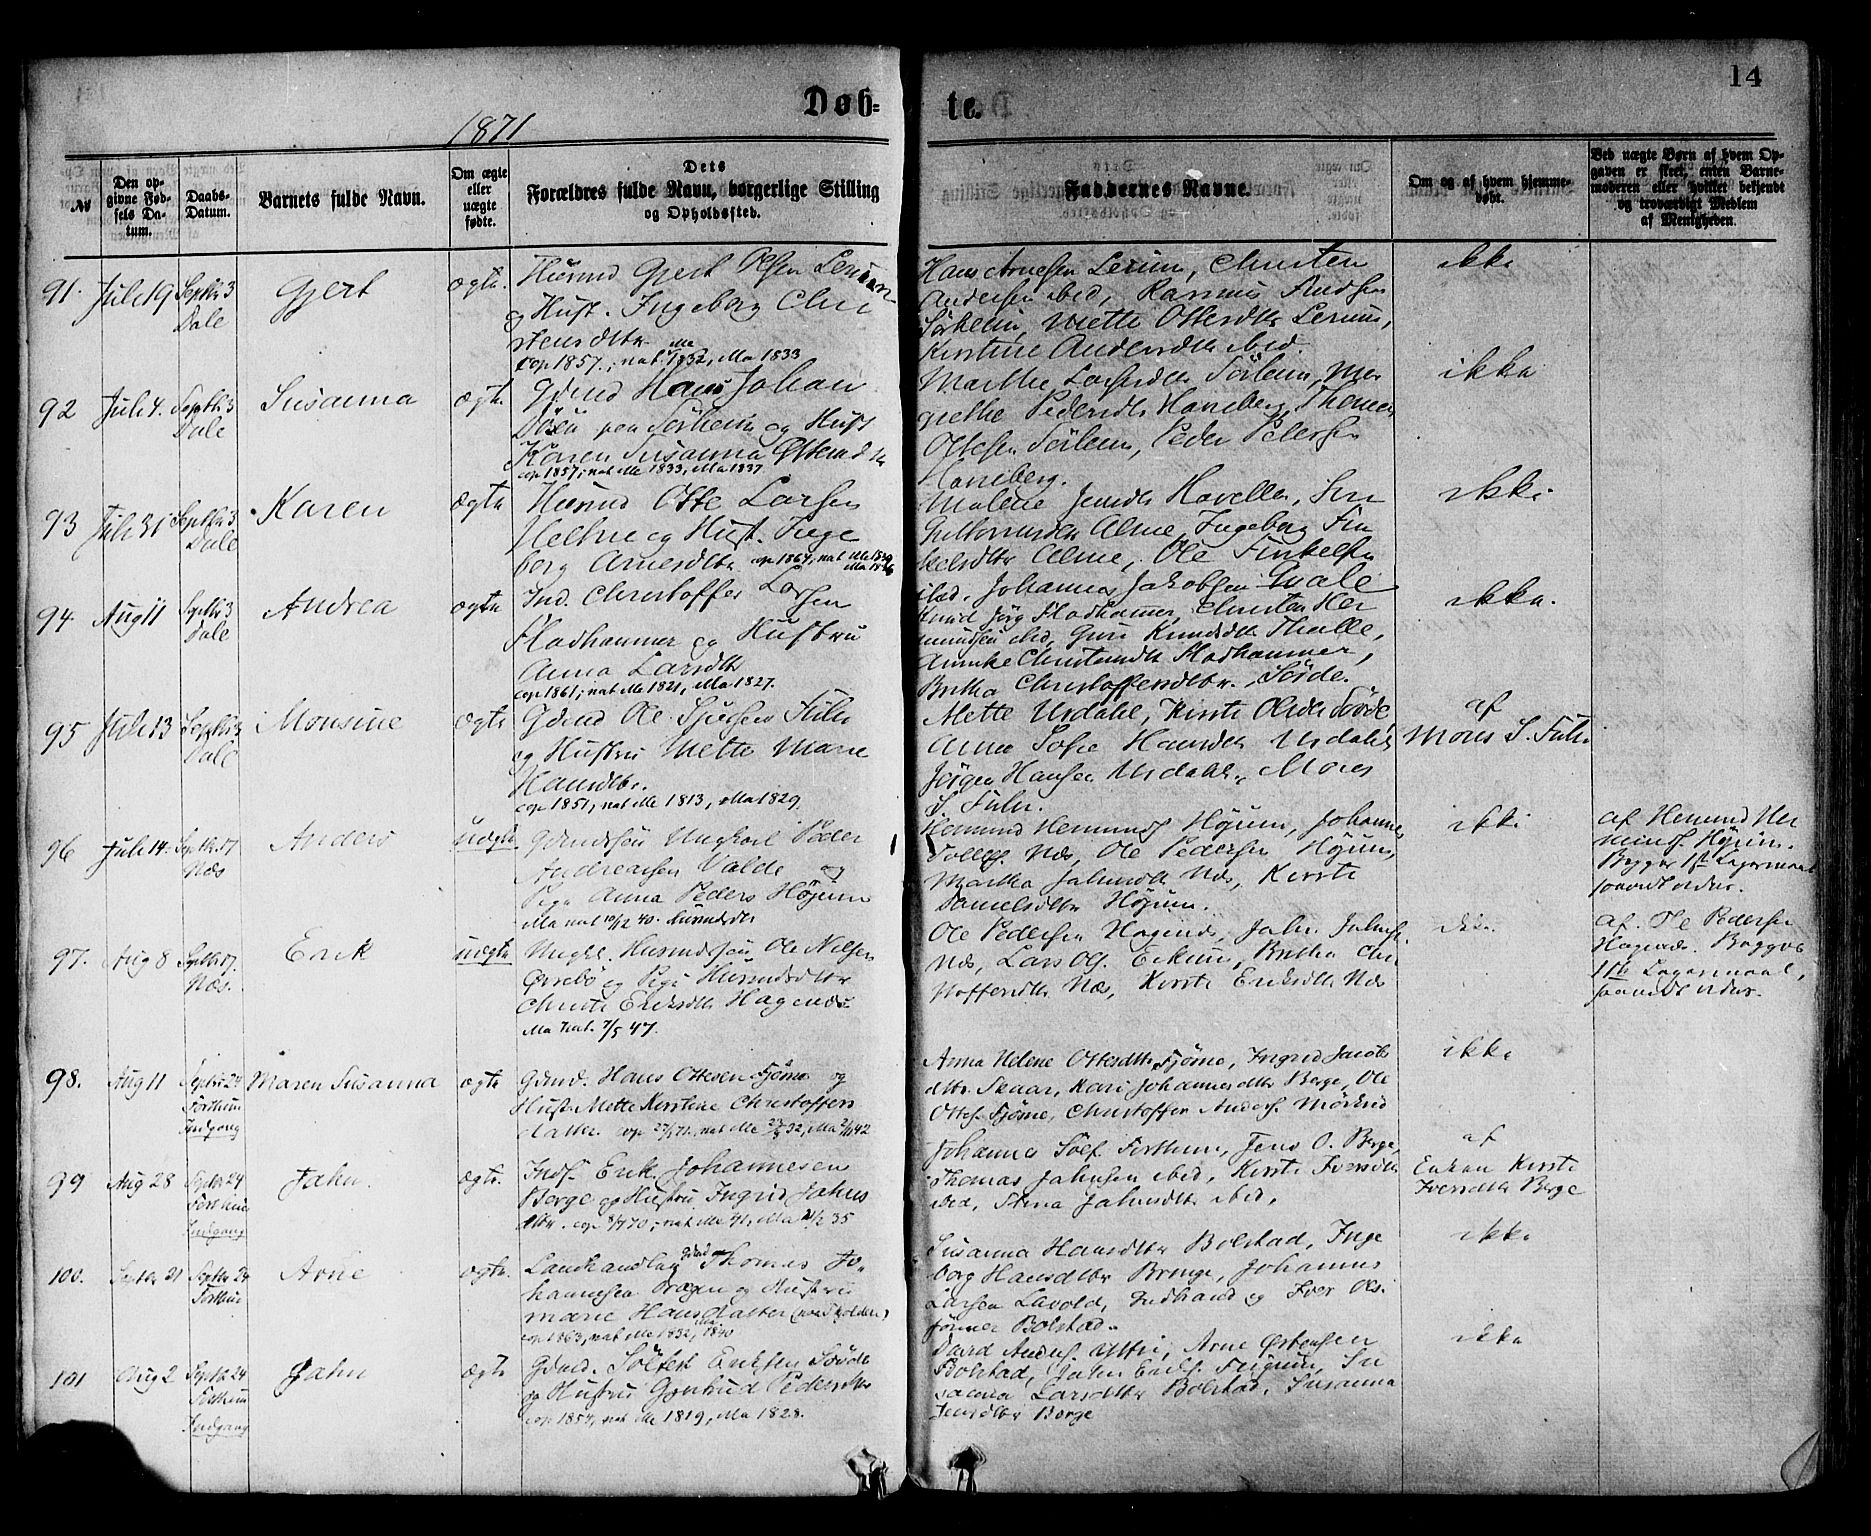 14
Døb=
te.
1871
No
Den op-
givne Fød-
sels Da-
tum.
Daabs-
Datum.
Barnets fulde Navn.
Om ægte
eller
uægte
fødte.
Dets
Forældres fulde Navn, borgerlige Stilling
og Opholdssted.
Faddernes Navne.
Om og af hvem hjemme-
døbt.
Ved uægte Børn af hvem Op-
gaven er skeet, enten Barne-
moderen eller hvilket bekjendt
og troværdigt Medlem
af Menigheden.
91. Juli 19 Septbr 3
Dale
Gjert
ægte.
Husmd Gjert Olsen Lerum
og Hust. Ingeborg Chri
stensdtr.
cop 1857; nat. Me 1832, Ma 1833
Hans Arnesen Lerum, Christen
Andersen ibid, Rasmus Andsen
Sørheim, Mette Ottesdtr Lerum,
Kirstine Andersdtr ibid.
ikke
92 Juli 4. Septbr 3
Dale
Susanna
ægte.
Gdmd Hans Johan
paa Sørheim og Hust
Karen Susanna Ottesdtr
cop 1857; nat Me 1833, Ma 1837.
Marthe Larsdtr Sørheim, Mar
grethe Pedersdtr Haneberg, Thomas
Ottesen Sørheim, Peder Petersen
Haneberg.
ikke
93 Juli 31 Septbr 3
Dale
Karen
ægte
Husmd Otte Larsen
og Hust. Inge
borg Arnesdtr cop 1864, nat Me 1839
Malene Jensdtr
Alme, Ingeborg Fin
kelsdtr Alme, Ole Finkelsen
ibid, Johannes Jakobsen Qvale
ikke
94 Aug 11 Septbr 3
Dale
Andrea
ægte
Ind. Christoffer Larsen
Fladhammer og Hustru
Anna Larsdtr
cop 1861; nat Me 1821, Ma 1827.
Knud Jörg Fladhammer, Christen Her
mundsen ibid, Guri Knudsdtr Thalle,
Annike Christensdtr Fladhammer,
Britha Christoffersdtr. Sørde.
ikke.
95 Juli 13 Septbr 3
Dale
Monsine
ægte
Gdmd Ole Sjursen Fuhr
og Hustru Mette Marie
Hansdtr.
cop 1851; nat Me 1813, Ma 1829
Mette Urdahl, Kirsti Olsdtr
Anna Sofie Hansdtr Urdahl,
Jørgen Hansen Urdahl, Mons
S. Fuhr.
af
Mons S. Fuhr
96 Juli 14. Septbr 17
Næs
Anders
uægte
Gdmdssøn Ungkarl Peder
Andreassen Valde og
Pige Anna Peders Høyum
Ma nat 10/12 40. Husmdsdtr
Hemund Hemunds Høyum, Johannes
Tollefs. Næs, Ole Pedersen Høyum,
Martha Jahnsdtr Næs, Kirsti
Danielsdtr Høyum.
ikke
af Hemund He
munds. Høyum.
Begges 1ste Leiermaal
saavidt vides.
97. Aug 8 Septbr 17.
Næs.
Erik
uægte
Ungkl. Husmdssøn Ole Nilsen
Ørrebø og Pige Husmdsdtr
Christi Eriksdtr Hagenæs
Ma nat. 7/5 47.
Ole Pedersen Hagenæs, Jahn Jahnsen
Næs, Lars Ols. Eikum, Britha Chri
stoffersdtr Næs, Kirsti Eriksdtr Næs
ikke.
af. Ole Pedersen
Hagenæs. Begges
1ste Leiermaal,
saavidt vides.
98. Aug 11 Septbr 24
Forthun
Indgang
Maren Susanna
ægte
Gdmd. Hans Ottesen Fjøsne og
Hust. Mette Kirstine Christoffers
datter. cop 27/1 71, nat Me 27/9 32, Ma 2/11 42
Anna Helene Ottesdtr Fjøsne, Ingrid Jacobs
dtr Skaar, Kari Johannesdtr Berge, Ole
Ottes. Fjøsne, Christoffer Anders. Mörkrid
ikke
99 Aug 28 Septbr 24
Forthun
Indgang
Jahn.
ægte.
Inds. Erik Johannesen
Berge og Hustru Ingrid Jahns
dtr. cop 8/4 70, nat Me 41, Ma 21/2 35
Johannes Sølf. Forthun, Jens O. Berge,
Thomas Jahnsen ibid, Kirsti Iversdtr
ibid, Stina Jahnsdtr ibid,
af
Enken Kirsti
Iversdtr Berge
100. Septbr 21 Septbr 24
Forthun
Arne
ægte.
Landhandler Gdmd og Thomas Jo-
hannesen Dragen og Hustru
Marie Hansdatter
cop 1863, nat Me 1832, Ma 1840
Susanna Hansdtr Bolstad, Inge
borg Hansdtr Bringe, Johannes
Larsen Lavold, Gudbrand og Iver Ols.
Bolstad.
ikke
101 Aug 2 Septbr 24
Forthun
Indgang
Jahn
ægte
Gdmd. Sølfest Eriksen
og Hustru Gjertrud Pedersdtr
cop 1854, nat Me 1819, Ma 1828.
David Anders. Arne Østensen
Bolstad, Jahn Eriks. Su
sanna Larsdtr Bolstad, Susanna
Jensdtr Berge
ikke